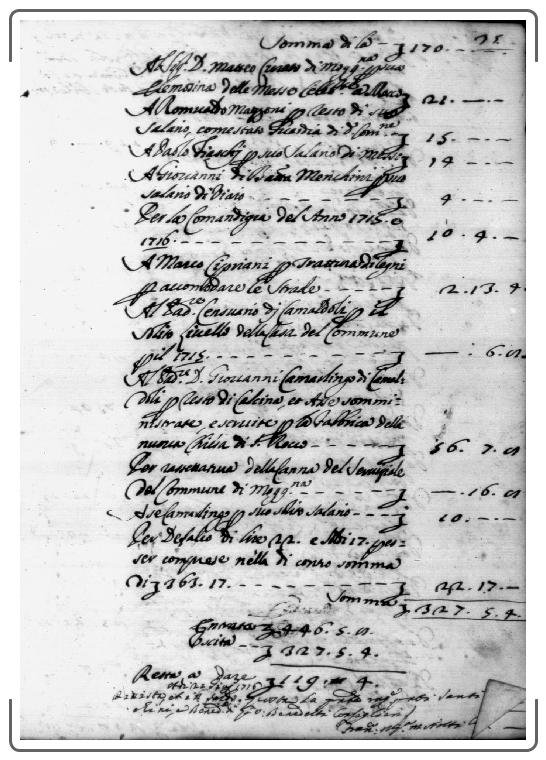 Somma di la — 170. —
Al Sig.r D. Matteo Curato di Mogg.na p sua
Elemosina delle Messe Celeb.te a S. Rocco 21. — —
A Romualdo Mazzoni p resto di suo
Salario, come stato di d.o Com.ne 15. — —
A Paolo Fraschi p suo Salario di Messo 14 — —
A Giovanni di Batta Menchini p suo
salario di Viaio 4. — —
Per la Comandigia del Anno 1715. e
1716. 10. 4. —
A Marco Cipriani p Trattura di Legni
p accomodare le Strade 2. 13. 4.
Al Pad.re Censuario di Camaldoli p il
solito Livello della Casa del Commune
p il 1715. — : 6.
Al Pad.re D. Giovanni Camarlingo di Camal-
doli p resto di Calcina, et Asse sommi-
nistrate, e servite p la fabbrica della
nuova Chiesa di S. Rocco 56. 7.
Per della Canna del
del Commune di Mogg.na — . 16.
A se Camarlingo p suo solito salario 10. — —
Per Defalco di lire 22. e soldi 17. p es-
ser comprese nella di contro somma
di 363. 17. 22. 17. —
Somma 327. 5. 4.
Entrata 446. 5.
Escita 327. 5. 4.
Resta a dare
119 — 4.